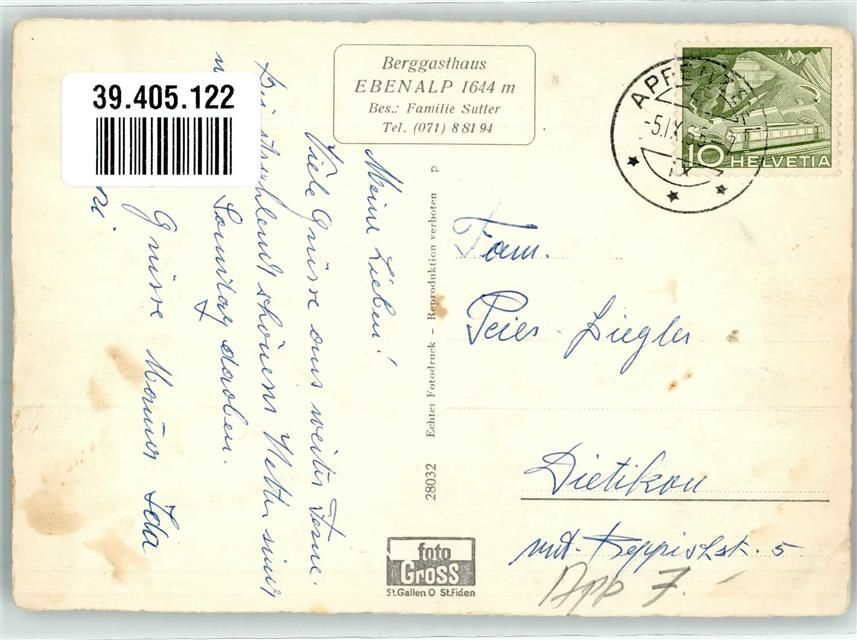 39.405.122
Berggasthaus
EBENALP 1644 m
Bes.: Familie Sutter
Tel. (071) 8 81 94
APPENZELL
-5.IX.
10 HELVETIA
Meine Lieben!
Viele Grüsse aus weiter Ferne.
Bei strahlend schönem Wetter sind
Sonntag daoben.
Grüsse
Ida
28032 Echter Fotodruck – Reproduktion verboten p
Fam.
Peier-Ziegler
Dietikon
unt. Reppischstr. 5
App 7.
foto
Gross
St.Gallen O St.Fiden